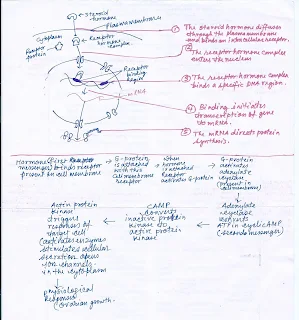 steroid
hormone
Plasmamembrane
Cytoplasm
Receptor
protein
Receptor
hormone
complex
Receptor
binding
region
DNA
① The steroid hormone diffuses
through the plasma membrane
and binds an intracellular receptor.
② The receptor hormone complex
enters the nucleus
③ The receptor hormone complex
binds a specific DNA region.
④ Binding initiates
transcription of gene
to mRNA.
⑤ The mRNA directs protein
synthesis.
Hormone (first
messenger) binds receptor
present on cell membrane
G-protein
is attached with
this
cell membrane
receptor
when
hormone
attached
Receptor
activates G-protein
G-protein
activates
adenylate
cyclase
(present in
cell membrane)
Adenylate
cyclase
converts
ATP in cyclic AMP
(Secondo messenger)
CAMP
converts
inactive protein
kinase to
active protein
kinase
Actin protein
kinase
triggers
responses of
target cell
(activates enzymes
stimulates cellular
secretion opens
ion channels
in the cytoplasm
physiological
Responses
(Ovarian growth.